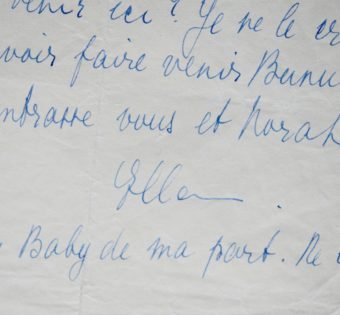 venir ici ? Je ne le
voir faire venir Bunu
vous et Norah
Ella
Baby de ma part. Ne